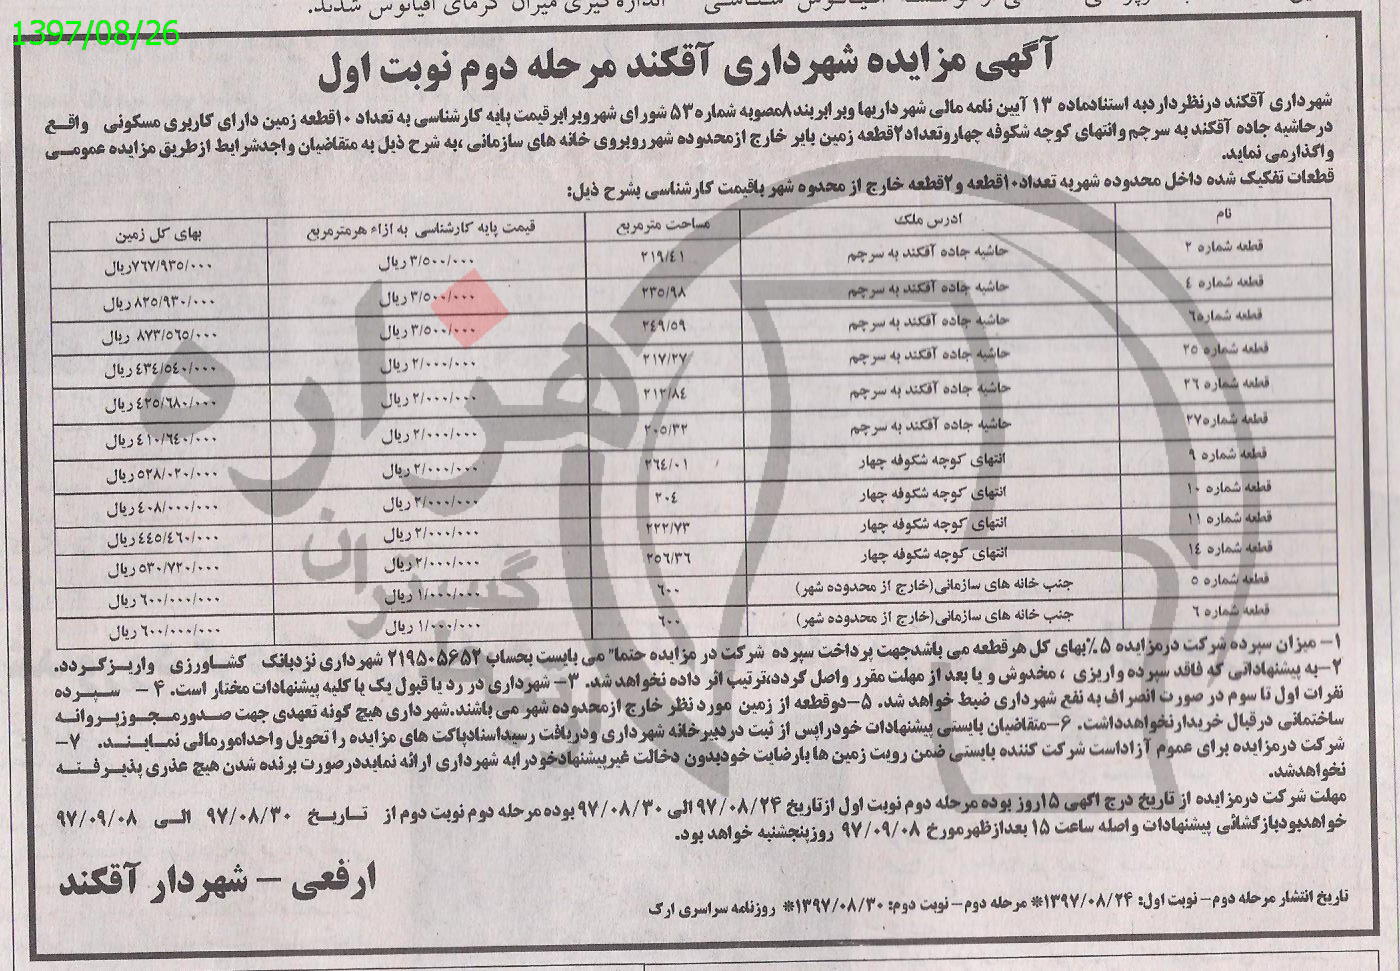 1397/08/26
اندازه گیری میزان گرمای اقیانوس شدند.
آگهی مزایده شهرداری آقکند مرحله دوم نوبت اول
شهرداری آقکند درنظرداردبه استنادماده ۱۳ آیین نامه مالی شهرداریها وبرابربند۸مصوبه شماره ۵۳ شورای شهروبرابرقیمت پایه کارشناسی به تعداد ۱۰قطعه زمین دارای کاربری مسکونی واقع
درحاشیه جاده آقکند به سرچم وانتهای کوچه شکوفه چهاروتعداد۲قطعه زمین بایر خارج ازمحدوده شهرروبروی خانه های سازمانی ،به شرح ذیل به متقاضیان واجدشرایط ازطریق مزایده عمومی
واگذارمی نماید.
قطعات تفکیک شده داخل محدوده شهربه تعداد۱۰قطعه و۲قطعه خارج از محدوه شهر باقیمت کارشناسی بشرح ذیل:
نام ادرس ملک مساحت مترمربع قیمت پایه کارشناسی به ازاء هرمترمربع بهای کل زمین
قطعه شماره ۲ حاشیه جاده آقکند به سرچم ۲۱۹/٤۱ ۳/۵۰۰/۰۰۰ ریال ۷٦۷/۹۳۵/۰۰۰ریال
قطعه شماره ٤ حاشیه جاده آقکند به سرچم ۲۳۵/۹۸ ۳/۵۰۰/۰۰۰ ریال ۸۲۵/۹۳۰/۰۰۰ ریال
قطعه شماره٦ حاشیه جاده آقکند به سرچم ۲٤۹/۵۹ ۳/۵۰۰/۰۰۰ ریال ۸۷۳/۵٦۵/۰۰۰ ریال
قطعه شماره ۲۵ حاشیه جاده آقکند به سرچم ۲۱۷/۲۷ ۲/۰۰۰/۰۰۰ ریال ٤۳٤/۵٤۰/۰۰۰ ریال
قطعه شماره ۲٦ حاشیه جاده آقکند به سرچم ۲۱۲/۸٤ ۲/۰۰۰/۰۰۰ ریال ٤۲۵/٦۸۰/۰۰۰ ریال
قطعه شماره۲۷ حاشیه جاده آقکند به سرچم ۲۰۵/۳۲ ۲/۰۰۰/۰۰۰ ریال ٤۱۰/٦٤۰/۰۰۰ ریال
قطعه شماره ۹ انتهای کوچه شکوفه چهار ۲٦٤/۰۱ ۲/۰۰۰/۰۰۰ ریال ۵۲۸/۰۲۰/۰۰۰ ریال
قطعه شماره ۱۰ انتهای کوچه شکوفه چهار ۲۰٤ ۲/۰۰۰/۰۰۰ ریال ٤۰۸/۰۰۰/۰۰۰ ریال
قطعه شماره ۱۱ انتهای کوچه شکوفه چهار ۲۲۲/۷۳ ۲/۰۰۰/۰۰۰ ریال ٤٤۵/٤٦۰/۰۰۰ ریال
قطعه شماره ۱٤ انتهای کوچه شکوفه چهار ۲۵٦/۳٦ ۲/۰۰۰/۰۰۰ ریال ۵۳۰/۷۲۰/۰۰۰ ریال
قطعه شماره ۵ جنب خانه های سازمانی(خارج از محدوده شهر) ٦۰۰ ۱/۰۰۰/۰۰۰ ریال ٦۰۰/۰۰۰/۰۰۰ ریال
قطعه شماره ٦ جنب خانه های سازمانی(خارج از محدوده شهر) ٦۰۰ ۱/۰۰۰/۰۰۰ ریال ٦۰۰/۰۰۰/۰۰۰ ریال
۱- میزان سپرده شرکت درمزایده ۵%بهای کل هرقطعه می باشدجهت پرداخت سپرده شرکت در مزایده حتما" می بایست بحساب ۲۱۹۵۰۵۶۵۲ شهرداری نزدبانک کشاورزی واریزگردد.
۲-به پیشنهاداتی که فاقد سپرده واریزی ، مخدوش و یا بعد از مهلت مقرر واصل گردد،ترتیب اثر داده نخواهد شد. ۳- شهرداری در رد یا قبول یک یا کلیه پیشنهادات مختار است. ۴- سپرده
نفرات اول تا سوم در صورت انصراف به نفع شهرداری ضبط خواهد شد. ۵-دوقطعه از زمین مورد نظر خارج ازمحدوده شهر می باشند.شهرداری هیچ گونه تعهدی جهت صدورمجوزپروانه
ساختمانی درقبال خریدارنخواهدداشت. ۶-متقاضیان بایستی پیشنهادات خودراپس از ثبت دردبیرخانه شهرداری ودریافت رسیداسنادپاکت های مزایده را تحویل واحدامورمالی نمایند. ۷-
شرکت درمزایده برای عموم آزاداست شرکت کننده بایستی ضمن رویت زمین ها بارضایت خودبدون دخالت غیرپیشنهادخودرابه شهرداری ارائه نمایددرصورت برنده شدن هیچ عذری پذیرفته
نخواهدشد.
مهلت شرکت درمزایده از تاریخ درج اگهی ۱۵روز بوده مرحله دوم نوبت اول ازتاریخ ۹۷/۰۸/۲۴ الی ۹۷/۰۸/۳۰ بوده مرحله دوم نوبت دوم از تاریخ ۹۷/۰۸/۳۰ الی ۹۷/۰۹/۰۸
خواهدبودبازگشائی پیشنهادات واصله ساعت ۱۵ بعدازظهرمورخ ۹۷/۰۹/۰۸ روزپنجشنبه خواهد بود.
ارفعی - شهردار آقکند
تاریخ انتشار مرحله دوم- نوبت اول: ۱۳۹۷/۰۸/۲۴* مرحله دوم- نوبت دوم: ۱۳۹۷/۰۸/۳۰* روزنامه سراسری ارک
هزاره
گستران